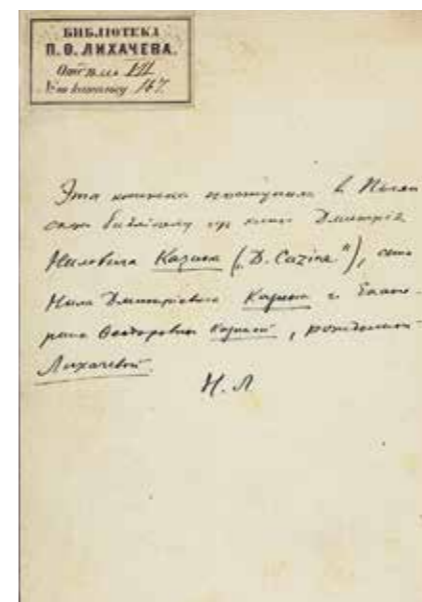 БИБЛІОТЕКА
П. Ѳ. ЛИХАЧЕВА.
Отдѣлъ VII
№ по каталогу 167.
Эта книжка поступила въ
библіотеку изъ книгъ Дмитрія
Ниловича Казина („D. Cazine"), сына
Нила Дмитріевича Казина и Екате-
рины Ѳедоровны Казиной, рожденной
Лихачевой.
Н. Л